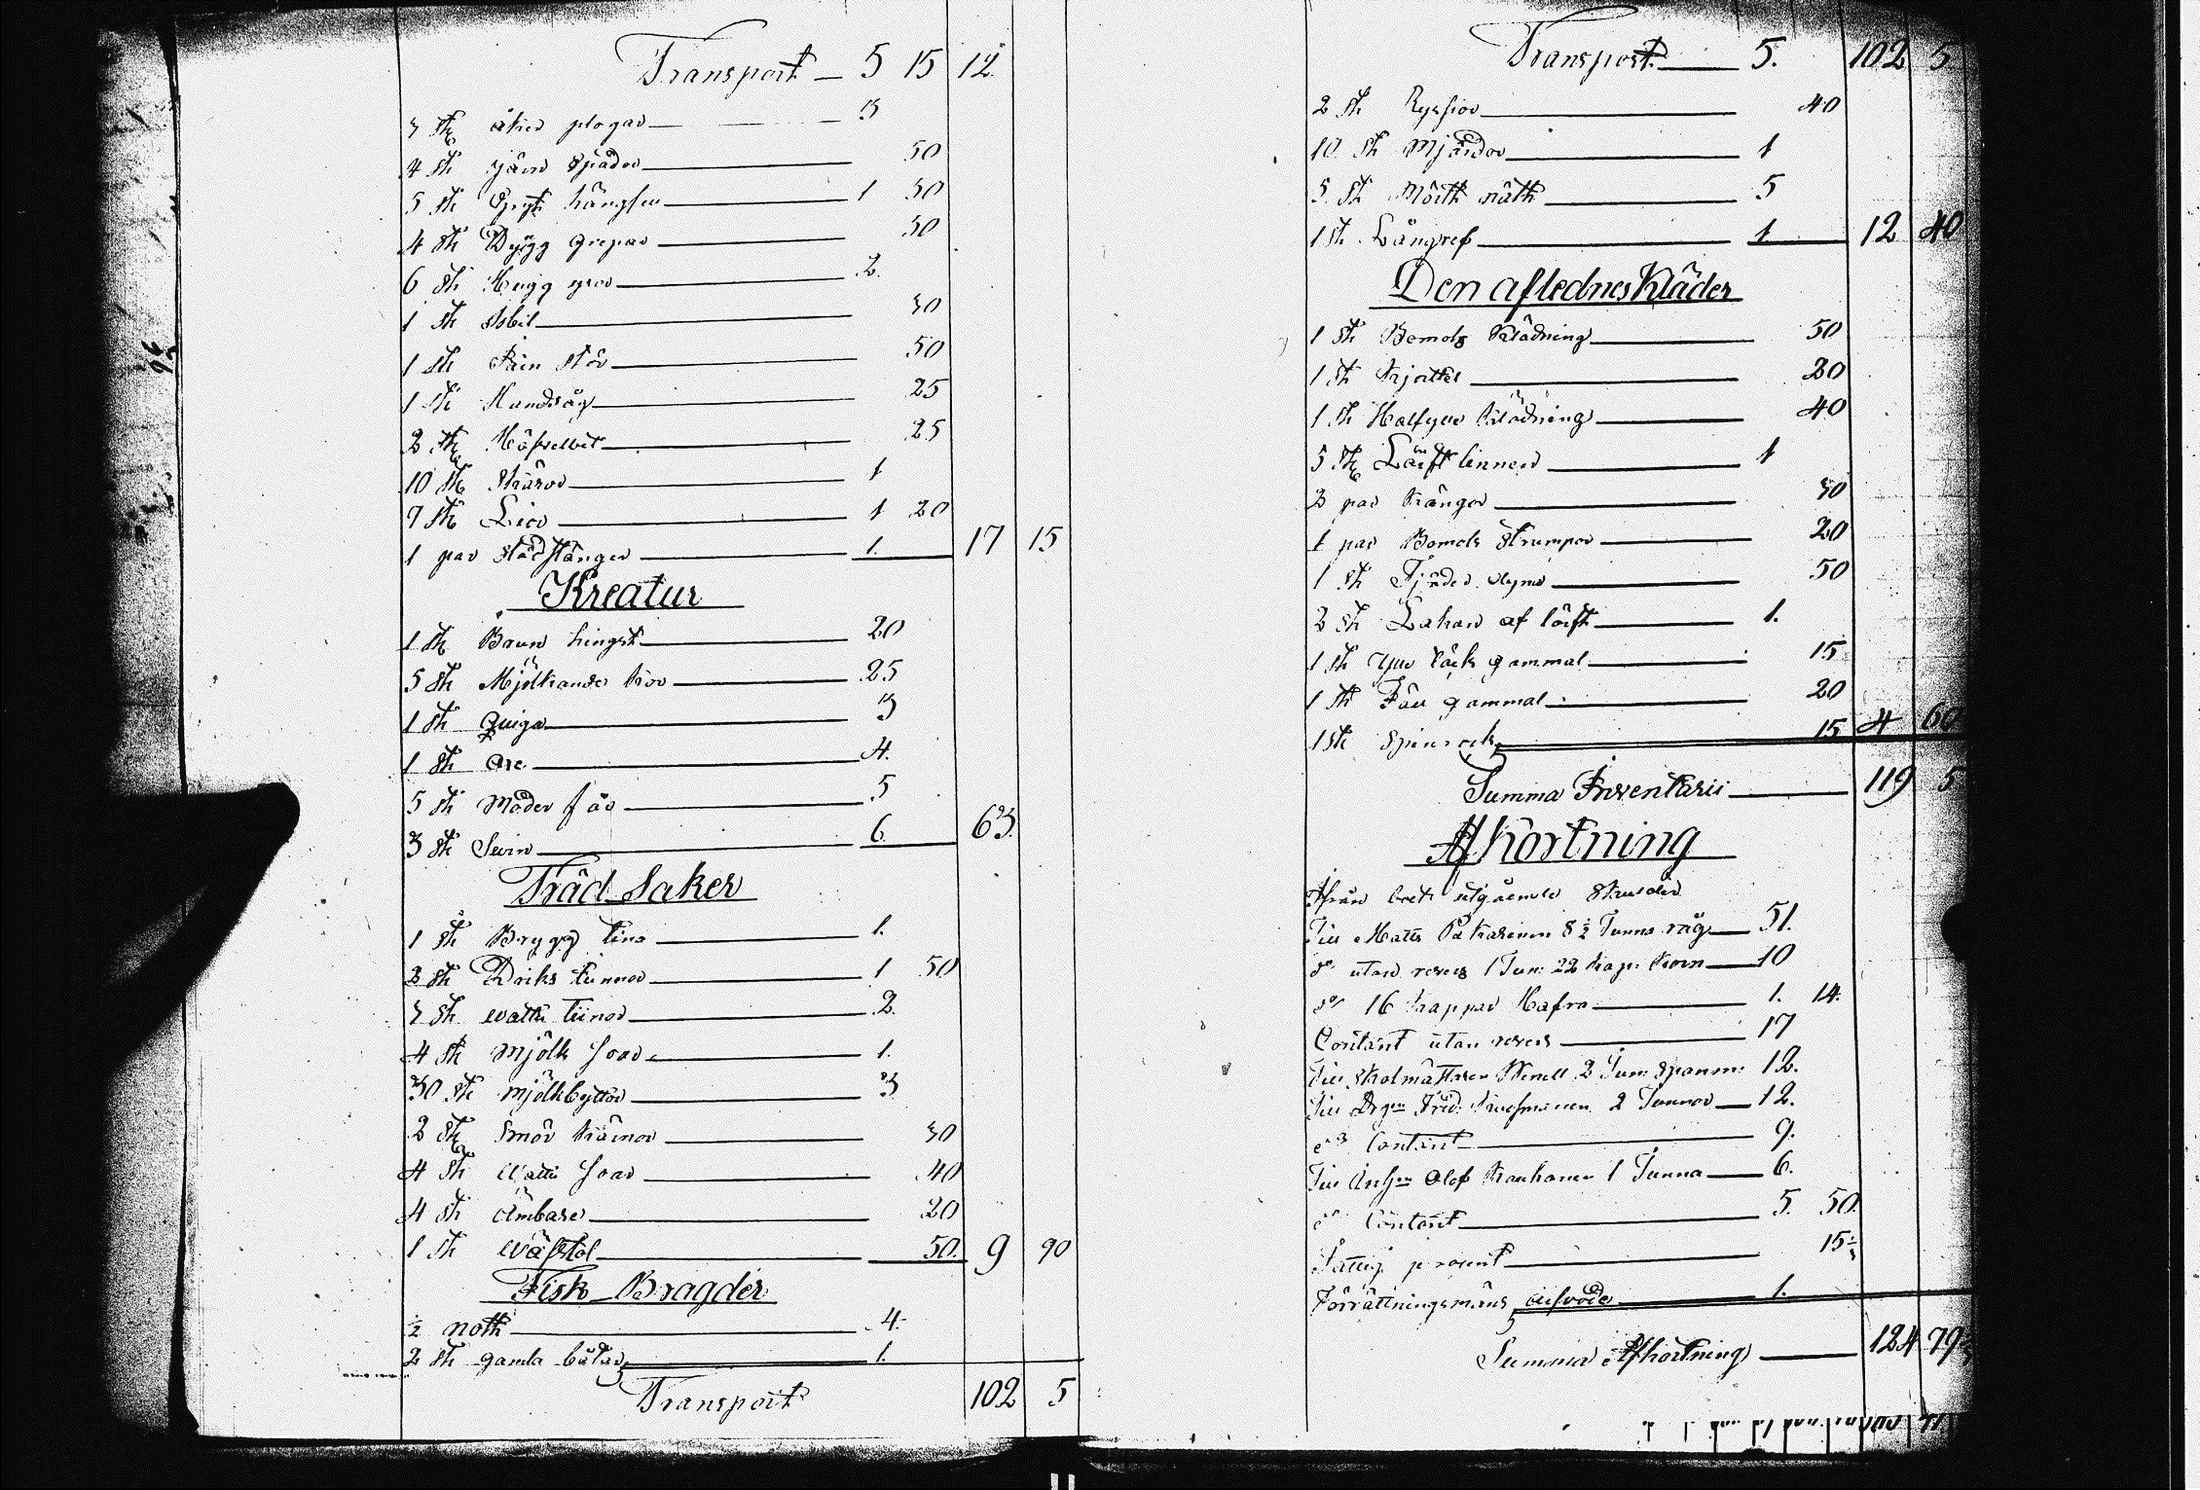 Transport 5 15 12
3 st åker plogar 3
4 st järn spador 50
5 st Gryt hängslen 1 50
4 st Dygg grepar 50
6 st Hugg yxor 2
1 st Isbil 30
1 st Järn stör 50
1 st Handsåg 25
2 st Höfvelbet 25
10 st Skäror 1
7 st Liar 1 20
1 par städ tänger 1. 17 15
Kreatur
1 st Brun hingst 20
5 st Mjölkande kor 25
1 st Quiga 3
1 st oxe 4.
5 st Moder får 5
3 st Svin 6. 63.
Träd Saker
1 st Brygg tina 1.
3 st Driks tunnor 1 50
3 st watt tiinor 2.
4 st Mjölk soar 1.
30 st mjölkbyttor 3
2 st Smör kärnor 30
4 st Watt soar 40
4 st Ämbare 20
1 st Wäfstol 50. 9 90
Fisk Bragder
½ noth 4.
2 st gamla båtar 1.
Transport 102 5
Transport 5. 102 5
2 st Ryssior 40
10 st Mjärdor 1
5 st Mört näth 5
1 st Långref 1 12 40
Den aflednes Kläder
1 st Bomols Klädning 50
1 st Kjortel 20
1 st Halfylle Klädning 40
5 st Lärft linnen 1
2 par Kängor 30
1 par Bomols Strumpor 20
1 st Fjäder dyna 50
2 st Lakan af lärft 1.
1 st Ylle täck gammal 15
1 st Fäll gammal 20
1 st Spinrock 15 4 60
Summa Inventarii 119 5
Afkortning
Ifrån boet utgående Skulder
Till Matts 8½ Tunna råg 51.
do utan revers 1 Tun: 22 kap: korn 10
do 16 kappar Hafra 1. 14.
Contant utan revers 17
Till Skolmästaren 2 Tun: Spanm: 12.
Till Fred: 2 Tunnor 12.
do Contant 9.
Till Olof 1 Tunna 6.
do Contant 5. 50.
Fattig procent 15
Förrättningsmäns arfvode 1.
Summa Afkortning 124 79